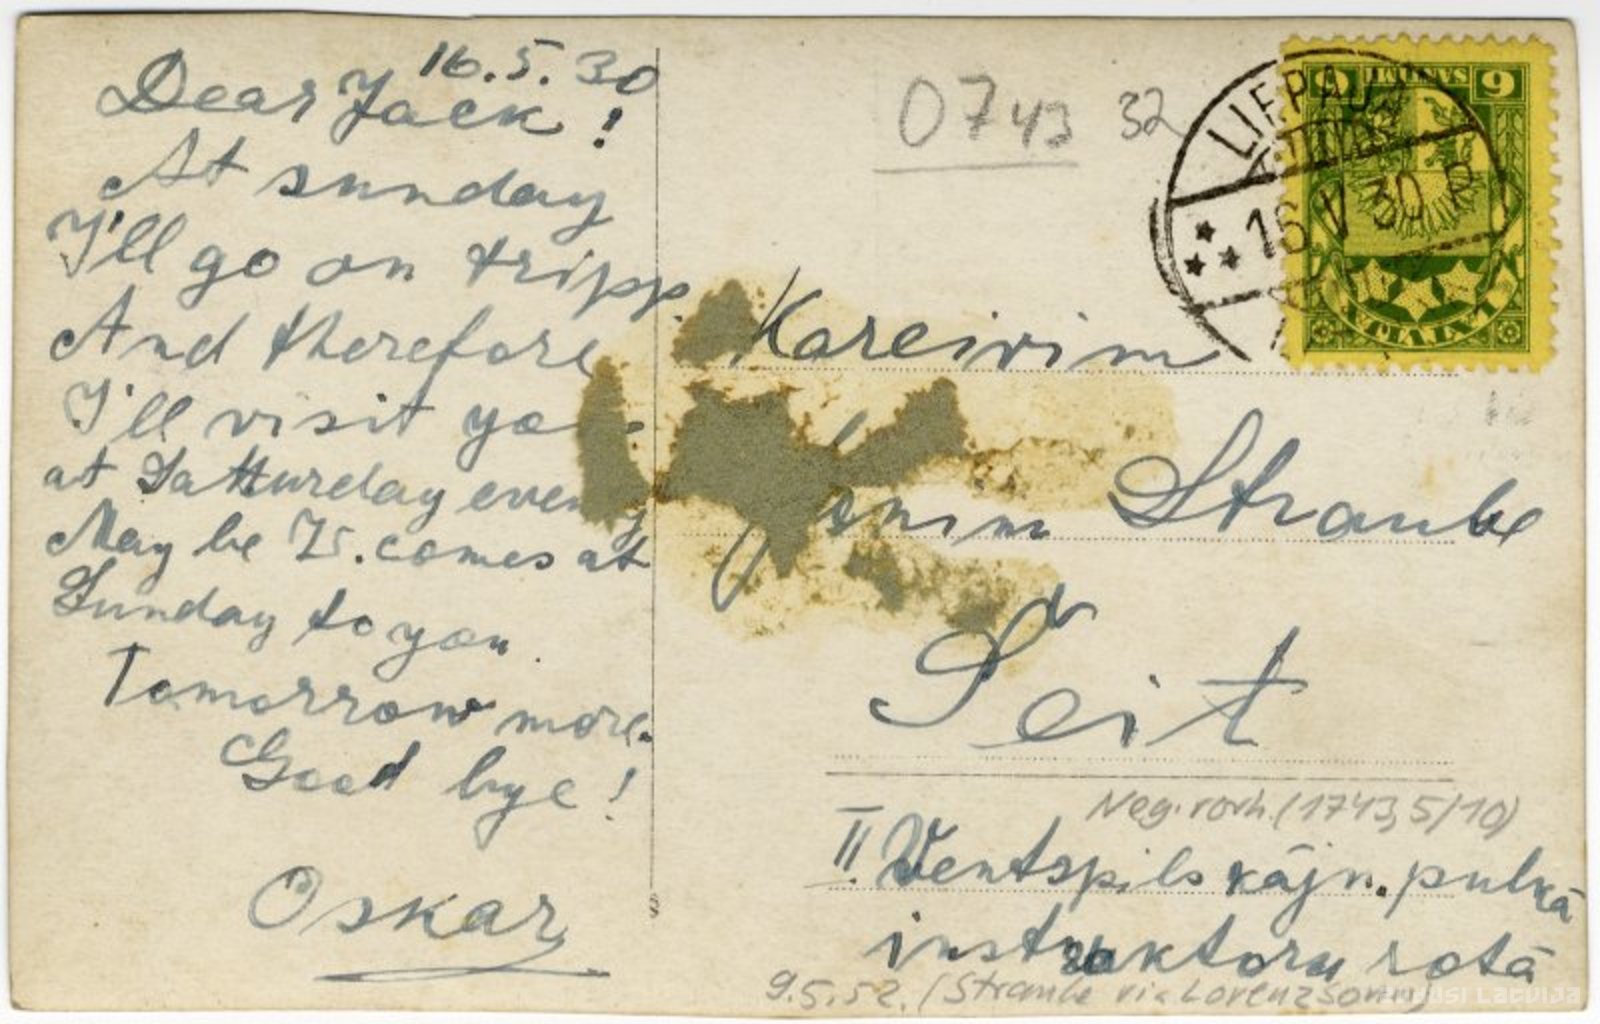 16.5.30
Dear Jack!
At sunday
I'll go on tripp.
And therefore
I'll visit yo
at Satturday even
May be Is. comes at
Sunday to you.
Tomorrow more.
Good bye!
Oskar
0743 32
LIEPAJA
16 V 30
6 SANTIMI 6
LATVIJA
Kareivim
Straube
Šeit
Neg. (1743,5/10)
II Ventspils kājn. pulkā
instruktoru rotā
9.5.52. (Straube via Lorenzsonn)
Zudusī Latvija